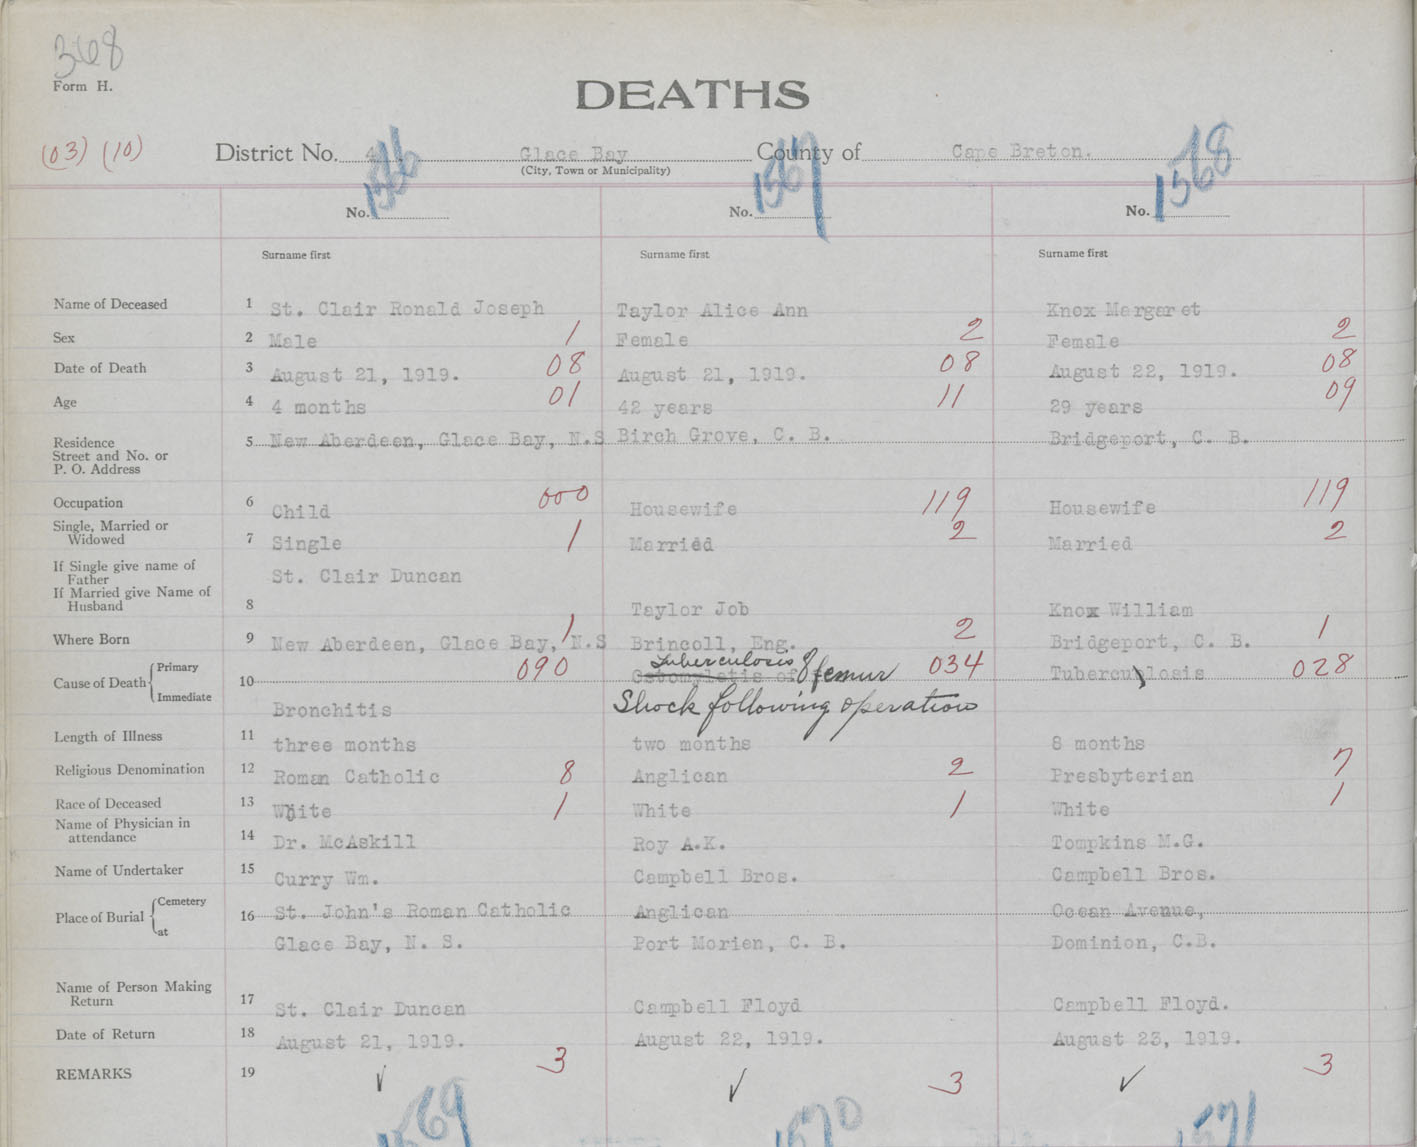 368
Form H.
DEATHS
(03) (10)
District No. 4. Glace Bay County of Cape Breton.
(City, Town or Municipality)
No. 1566 No. 1567 No. 1568
Surname first Surname first Surname first
Name of Deceased 1 St. Clair Ronald Joseph Taylor Alice Ann Knox Margaret
Sex 2 Male 1 Female 2 Female 2
Date of Death 3 August 21, 1919. 08 August 21, 1919. 08 August 22, 1919. 08
Age 4 4 months 01 42 years 11 29 years 09
Residence
Street and No. or
P. O. Address
5 New Aberdeen, Glace Bay, N.S Birch Grove, C. B. Bridgeport, C. B.
Occupation 6 Child 000 Housewife 119 Housewife 119
Single, Married or
Widowed 7 Single 1 Married 2 Married 2
If Single give name of
Father St. Clair Duncan
If Married give Name of
Husband 8 Taylor Job Knox William
Where Born 9 New Aberdeen, Glace Bay, N.S 1 Brincoll, Eng. 2 Bridgeport, C. B. 1
Cause of Death Primary 10 090 Tuberculosis of femur 034 Tuberculosis 028
Immediate Bronchitis Shock following operation
Length of Illness 11 three months two months 8 months
Religious Denomination 12 Roman Catholic 8 Anglican 2 Presbyterian 7
Race of Deceased 13 White 1 White 1 White 1
Name of Physician in
attendance 14 Dr. McAskill Roy A.K. Tompkins M.G.
Name of Undertaker 15 Curry Wm. Campbell Bros. Campbell Bros.
Place of Burial Cemetery 16 St. John's Roman Catholic Anglican Ocean Avenue,
at Glace Bay, N. S. Port Morien, C. B. Dominion, C.B.
Name of Person Making
Return 17 St. Clair Duncan Campbell Floyd Campbell Floyd.
Date of Return 18 August 21, 1919. August 22, 1919. August 23, 1919.
REMARKS 19 3 3 3
1569 1570 1571